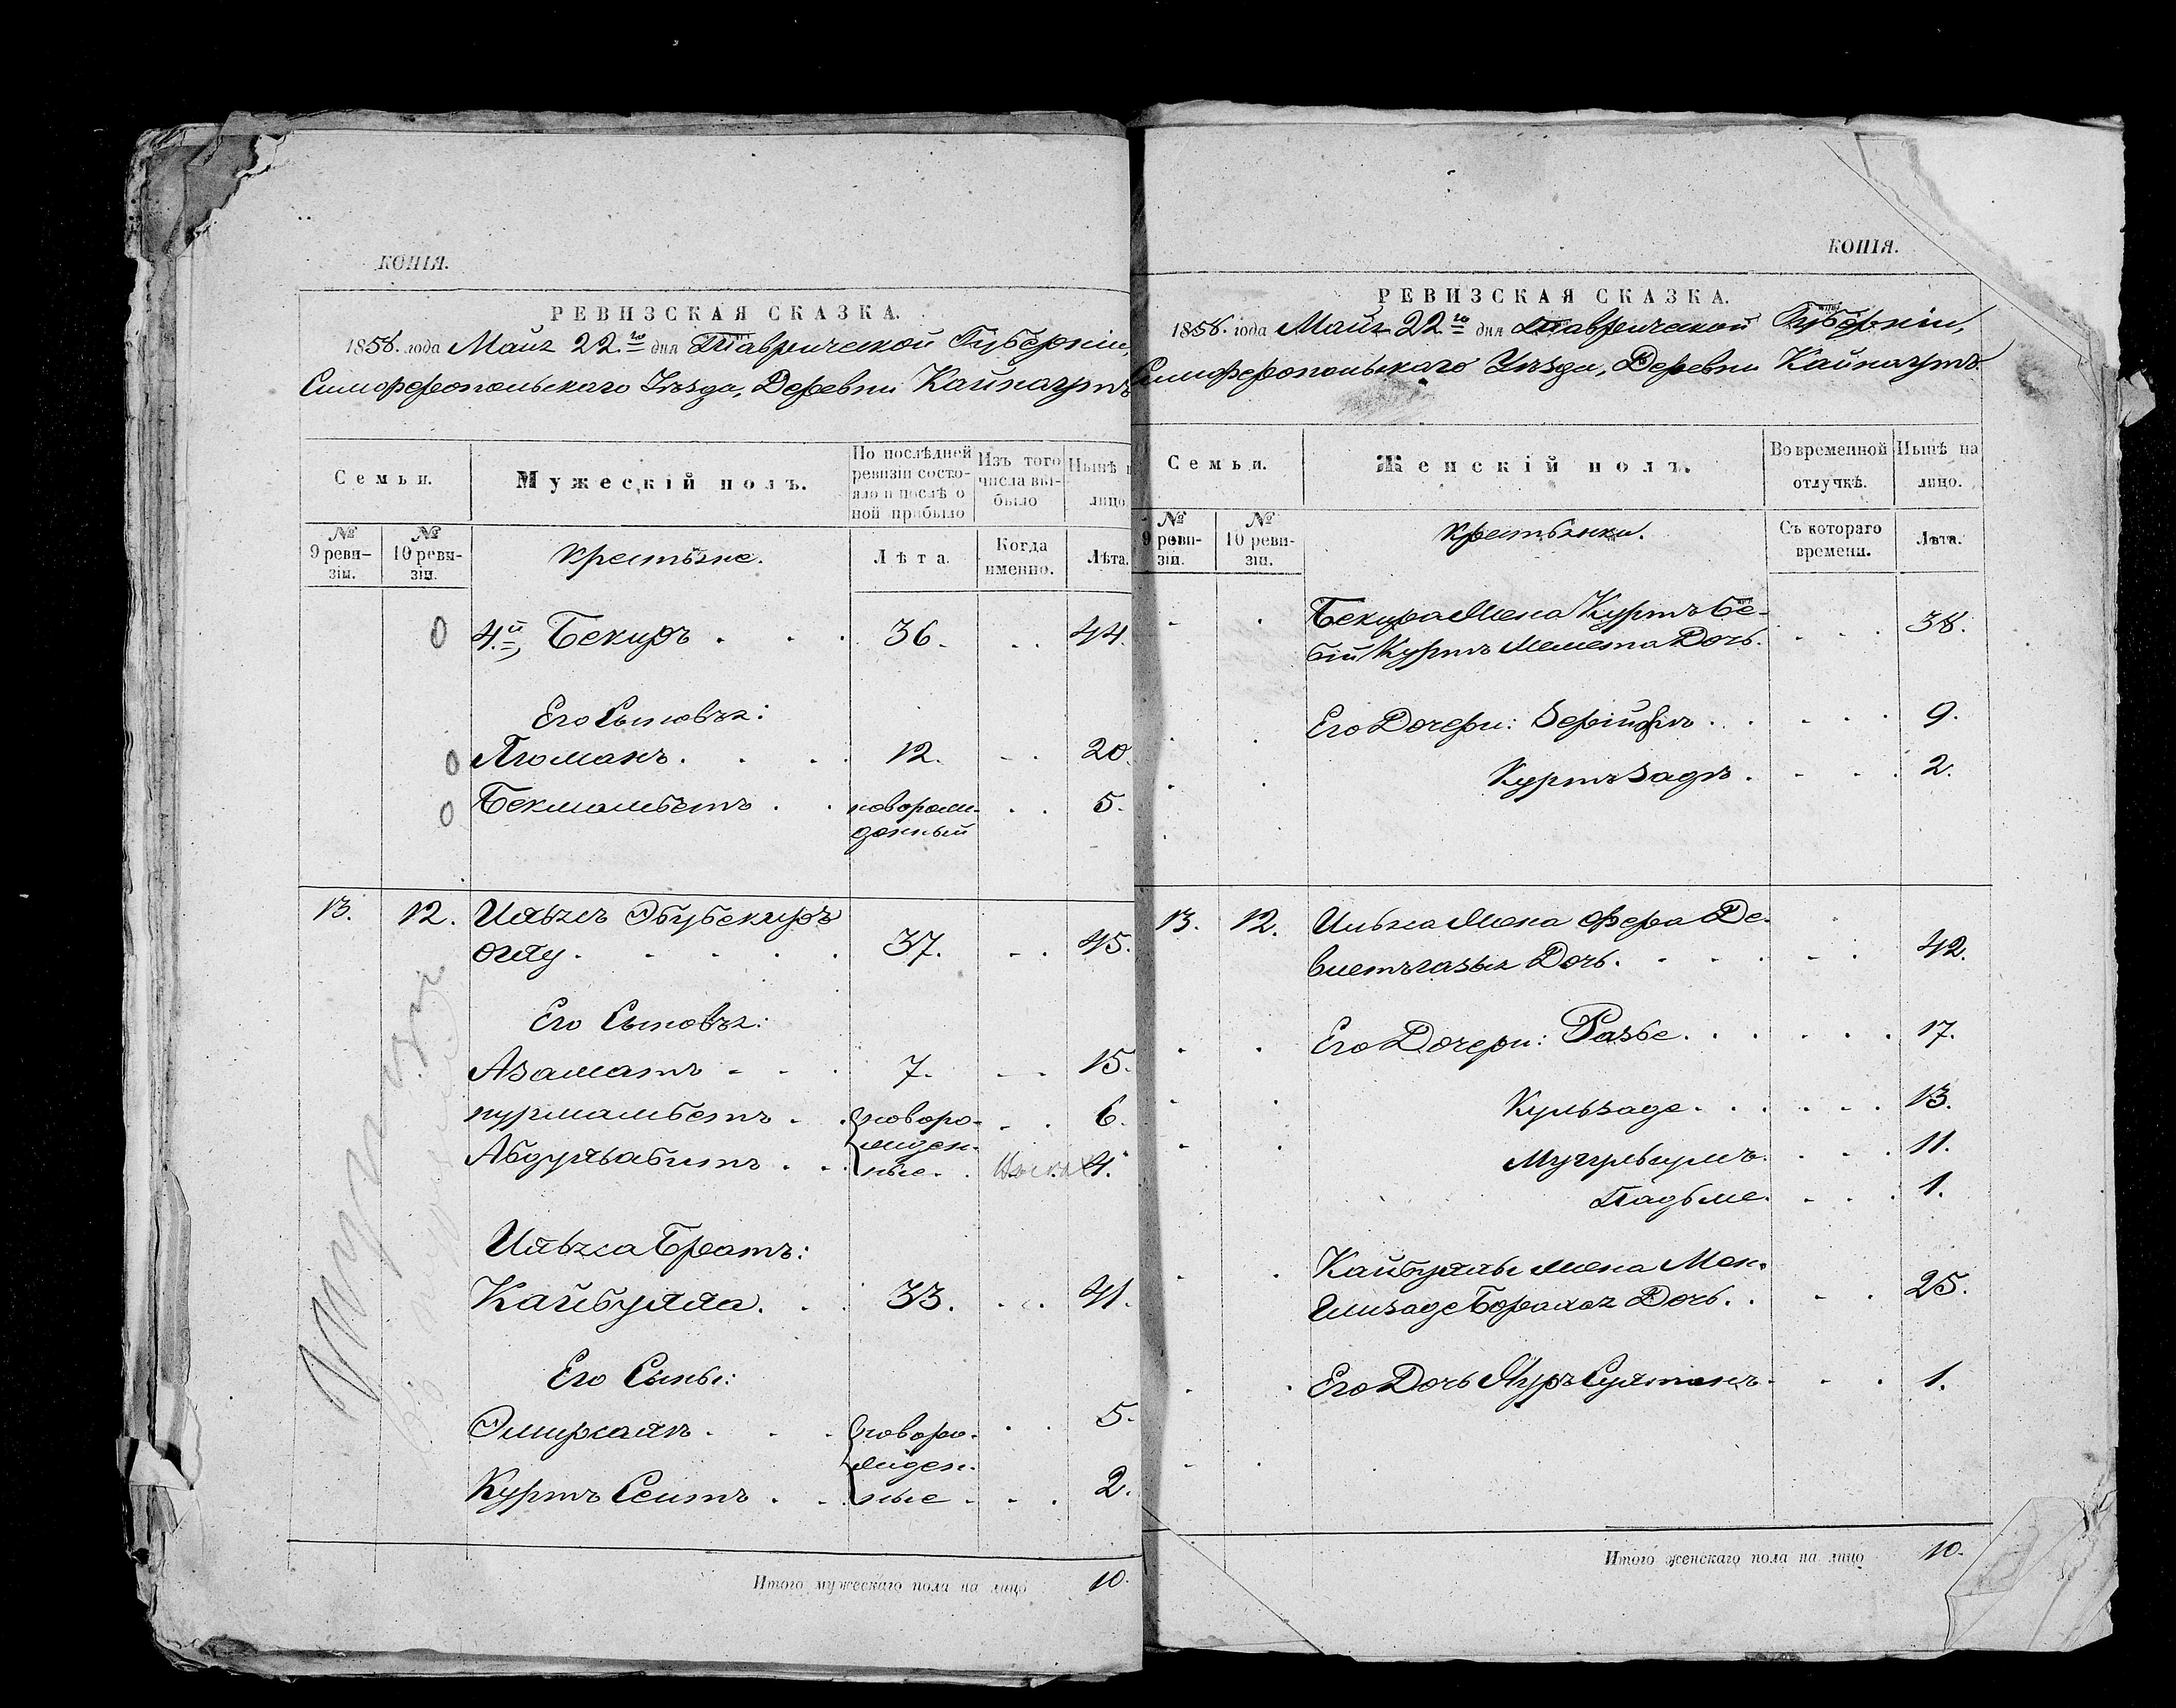 КОПІЯ.
РЕВИЗСКАЯ СКАЗКА.
1858. года Маия 22.го дня Таврической Губерніи,
Симферопольскаго Уѣзда, Деревни Кайнаутъ
Семьи.
Мужескій полъ.
По послѣдней ревизіи состояло и послѣ оной прибыло
Изъ того числа выбыло
Нынѣ
лицо
№ 9 ревизіи.
№ 10 ревизіи.
Крестьяне.
Лѣта.
Когда именно.
Лѣта.
0 4.й Бекиръ . . . 36. . . 44.
Его Сыновья:
0 Люманъ. . . . 12. . . 20.
0 Бекмамбетъ . . новорож-
денный . . 5.
13. 12. Ильясъ Эбубекиръ
оглу . . . . . 37. . . 45.
Его Сыновья:
Азаматъ . . . 7. . . 15.
Нурмамбетъ . . новоро- . . 6.
жден-
Абдульвабитъ . . ные. . 4.
Ильяса Братъ:
Кайбулла. . . 33. . . 41.
Его Сыны:
Эмиръали . . . новоро- . . 5.
жден-
Куртъ Сеитъ . . ные . . . 2.
Итого мужескаго пола на лицо 10.
КОПІЯ.
РЕВИЗСКАЯ СКАЗКА.
1858. года Маия 22.го дня Таврической Губерніи,
Симферопольскаго Уѣзда, Деревни Кайнаутъ
Семьи.
Женскій полъ.
Во временной отлучкѣ.
Нынѣ на лицо.
№ 9 ревизіи.
№ 10 ревизіи.
Крестьянки.
Съ котораго времени.
Лѣта.
Бекира Жена Куртъ Бе-
бій Куртъ Мемета Дочь. . . . 38.
Его Дочери: . . . . . 9.
Куртъ Заде . . . . 2.
13. 12. Ильяса Жена Фера Де-
влетъ Дочь. . . . . . 42.
Его Дочери: Разбе. . . . . . 17.
Кульзаде. . . . . . 13.
. . . . 11.
. . . . 1.
Кайбуллы Жена Мен-
глизаде Дочь. . . . 25.
Его Дочь Нуръ Султанъ. . . 1.
Итого женскаго пола на лицо 10.